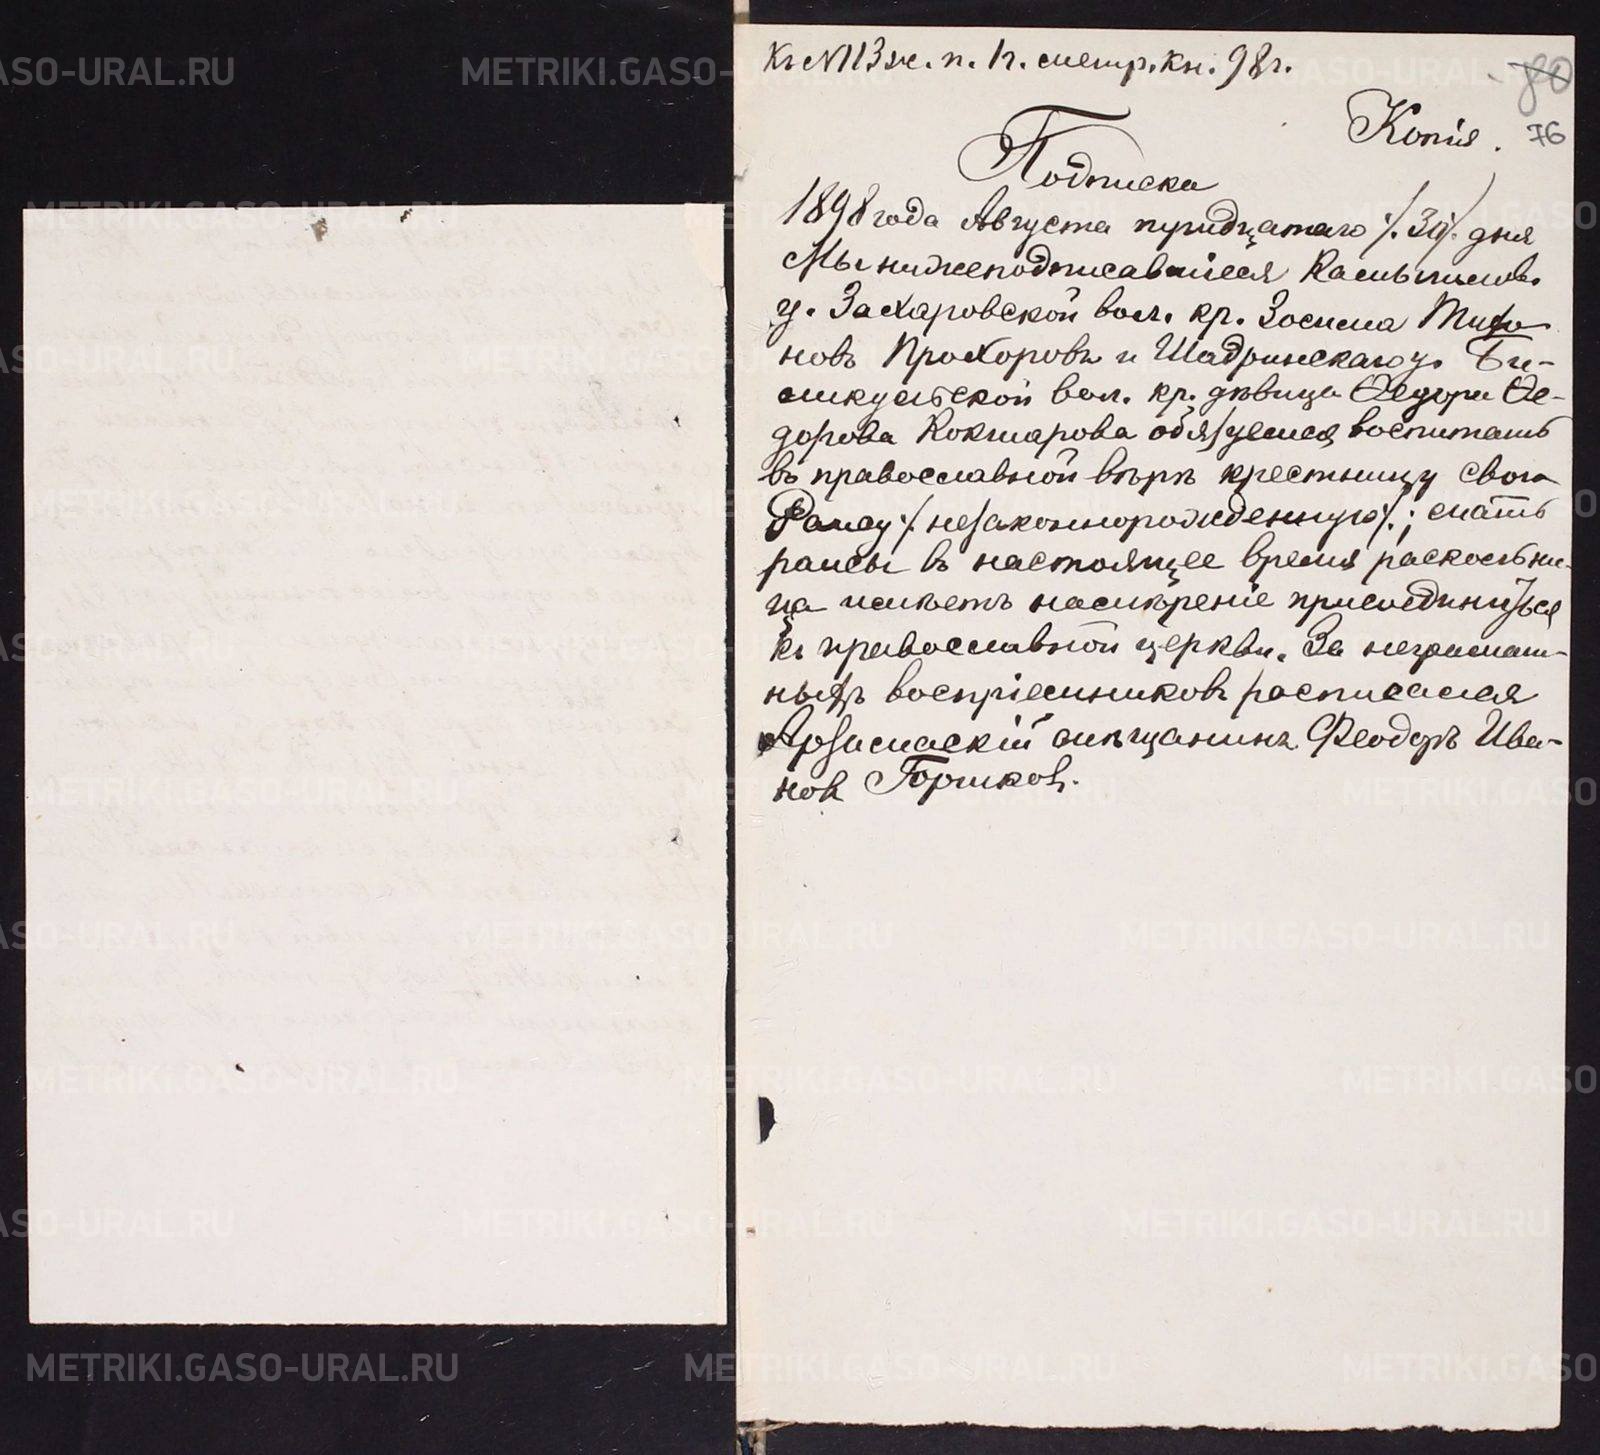 Къ №113 ж. п. 1 ч. метр. кн. 98 г.
80
Копія.
76
Подписка
1898 года Августа тридцатаго /. 30 /. дня
Мы нижеподписавшіеся Камышлов.
у. Захаровской вол. кр. Зосима Тифо-
новъ Прохоровъ и Шадринскаго у. Ги-
микульской вол. кр. дѣвица Ѳедора Ѳе-
дорова Кокшарова обязуемся воспитать
въ православной вѣрѣ крестницу свою
Раису /. незаконнорожденную /. ; мать
раисы въ настоящее время раскольни-
ца имѣетъ намѣреніе присоединиться
къ православной церкви. За неграмат-
ныхъ воспріемниковъ росписался
Арзамаскій мѣщанинъ Феодоръ Ива-
новъ Горшковъ.
METRIKI.GASO-URAL.RU